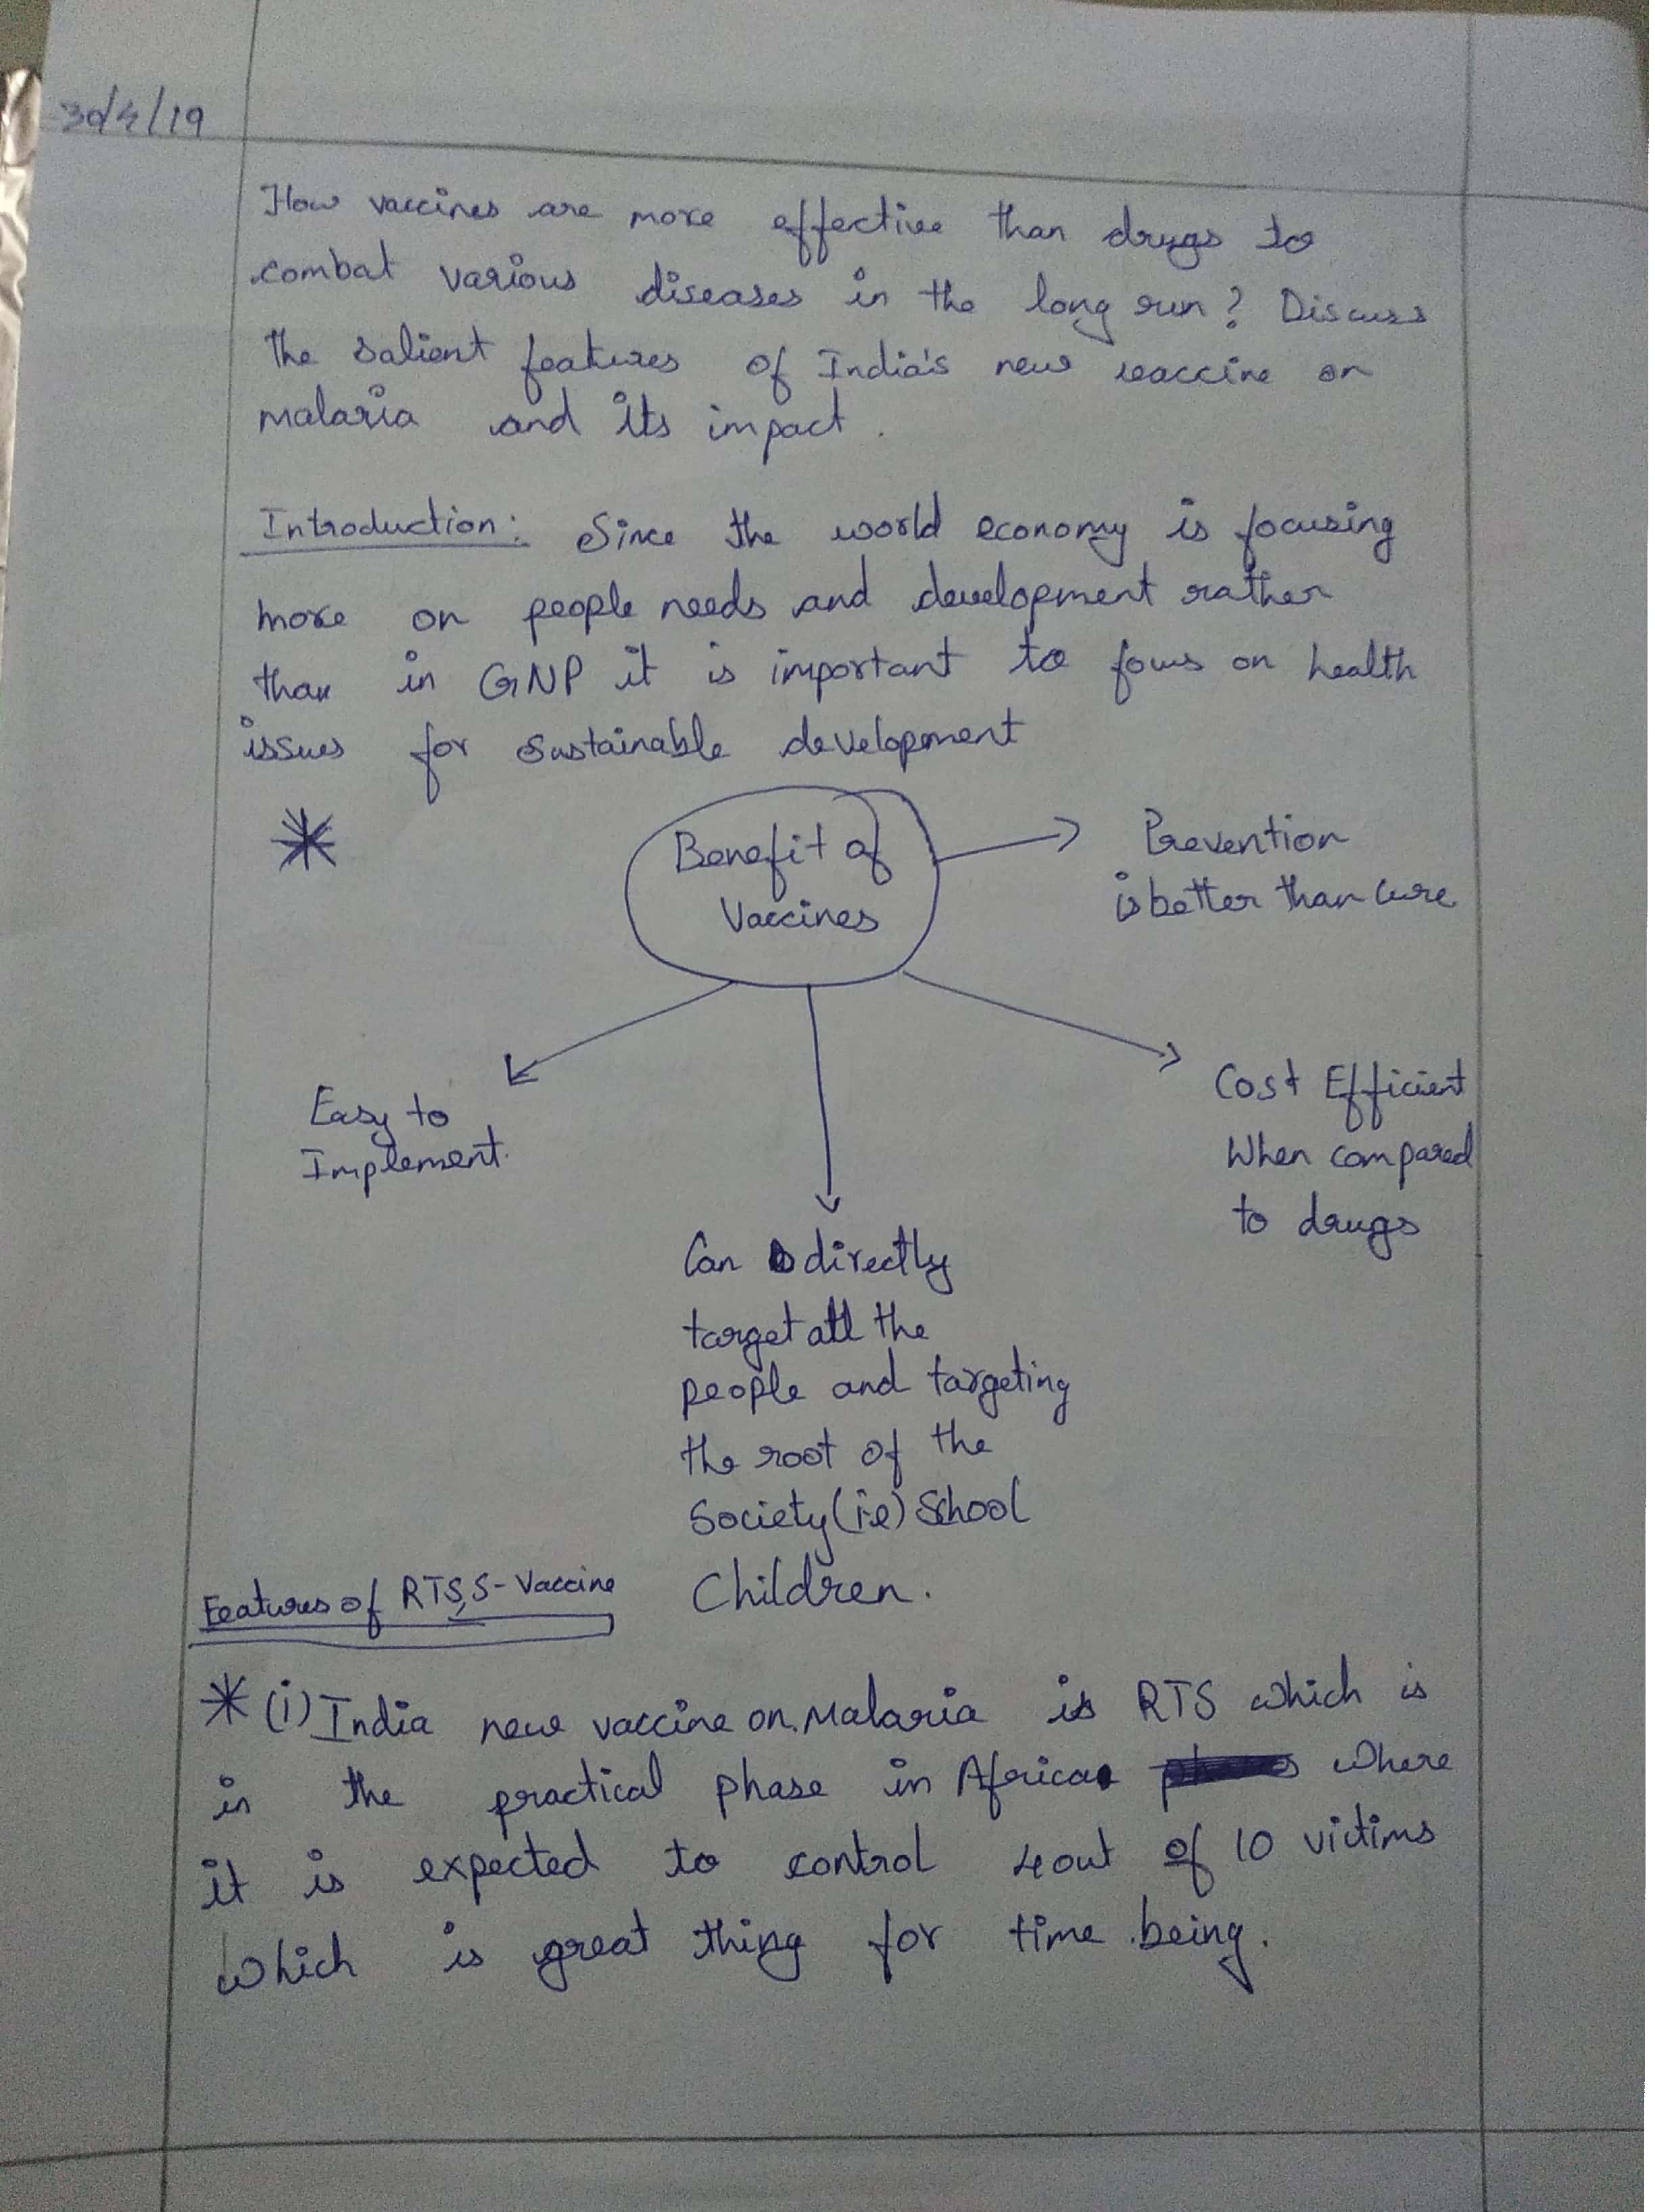 30/4/19
How vaccines are more effective than drugs to
combat various diseases in the long run? Discuss
the salient features of India's new vaccine on
malaria and its impact.
Introduction: Since the world economy is focusing
more on people needs and development rather
than in GNP it is important to focus on health
issues for sustainable development
Benefit of
Vaccines
Prevention
is better than cure
Easy to
Implement.
Cost Efficient
When compared
to drugs
Can directly
target all the
people and targeting
the root of the
Society (i.e) School
Children.
Features of RTS,S - Vaccine
* (i) India new vaccine on Malaria is RTS which is
in the practical phase in Africa where
it is expected to control 4 out of 10 victims
which is great thing for time being.